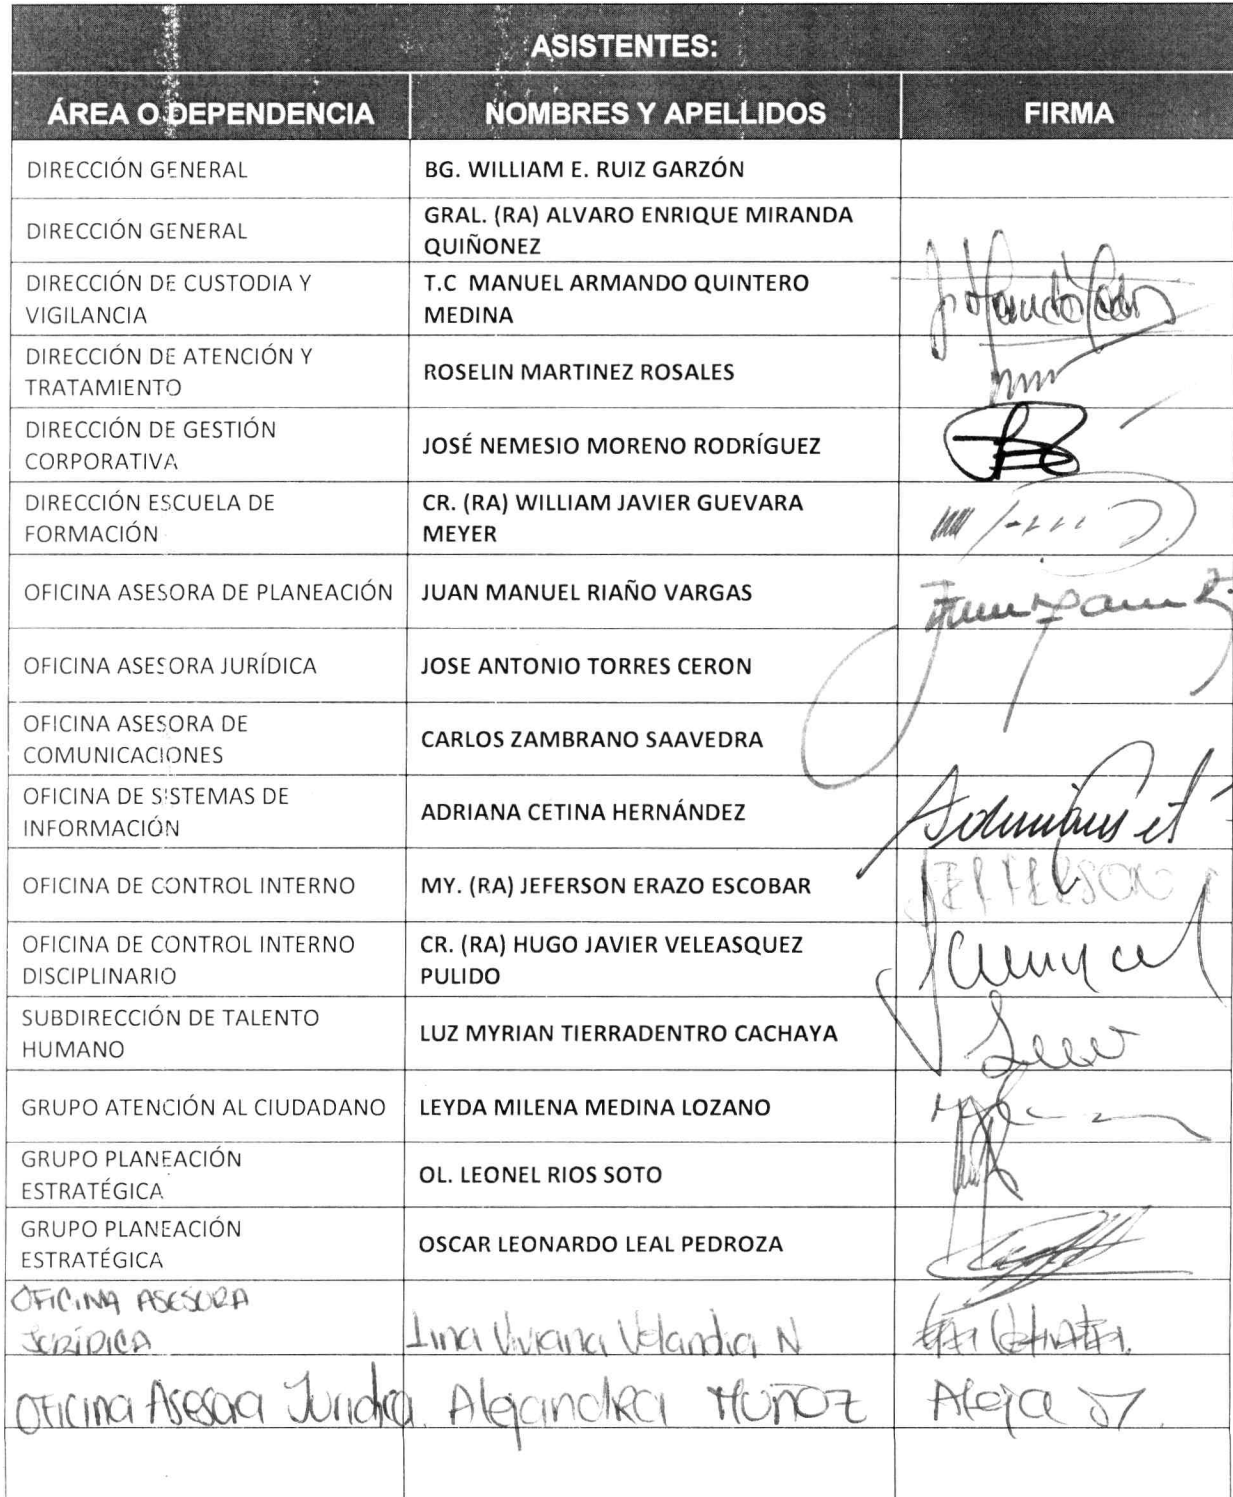 ASISTENTES:
ÁREA O DEPENDENCIA NOMBRES Y APELLIDOS FIRMA
DIRECCIÓN GENERAL BG. WILLIAM E. RUIZ GARZÓN
DIRECCIÓN GENERAL GRAL. (RA) ALVARO ENRIQUE MIRANDA
QUIÑONEZ
DIRECCIÓN DE CUSTODIA Y
VIGILANCIA
T.C MANUEL ARMANDO QUINTERO
MEDINA
DIRECCIÓN DE ATENCIÓN Y
TRATAMIENTO
ROSELIN MARTINEZ ROSALES
DIRECCIÓN DE GESTIÓN
CORPORATIVA
JOSÉ NEMESIO MORENO RODRÍGUEZ
DIRECCIÓN ESCUELA DE
FORMACIÓN
CR. (RA) WILLIAM JAVIER GUEVARA
MEYER
OFICINA ASESORA DE PLANEACIÓN JUAN MANUEL RIAÑO VARGAS
OFICINA ASESORA JURÍDICA JOSE ANTONIO TORRES CERON
OFICINA ASESORA DE
COMUNICACIONES
CARLOS ZAMBRANO SAAVEDRA
OFICINA DE SISTEMAS DE
INFORMACIÓN
ADRIANA CETINA HERNÁNDEZ
OFICINA DE CONTROL INTERNO MY. (RA) JEFERSON ERAZO ESCOBAR JEFFERSON
OFICINA DE CONTROL INTERNO
DISCIPLINARIO
CR. (RA) HUGO JAVIER VELEASQUEZ
PULIDO
SUBDIRECCIÓN DE TALENTO
HUMANO
LUZ MYRIAN TIERRADENTRO CACHAYA
GRUPO ATENCIÓN AL CIUDADANO LEYDA MILENA MEDINA LOZANO
GRUPO PLANEACIÓN
ESTRATÉGICA
OL. LEONEL RIOS SOTO
GRUPO PLANEACIÓN
ESTRATÉGICA
OSCAR LEONARDO LEAL PEDROZA
OFICINA ASESORA
JURÍDICA
Lina Viviana Velandia N
Oficina Asesora Juridica. Alejandra Muñoz Aleja